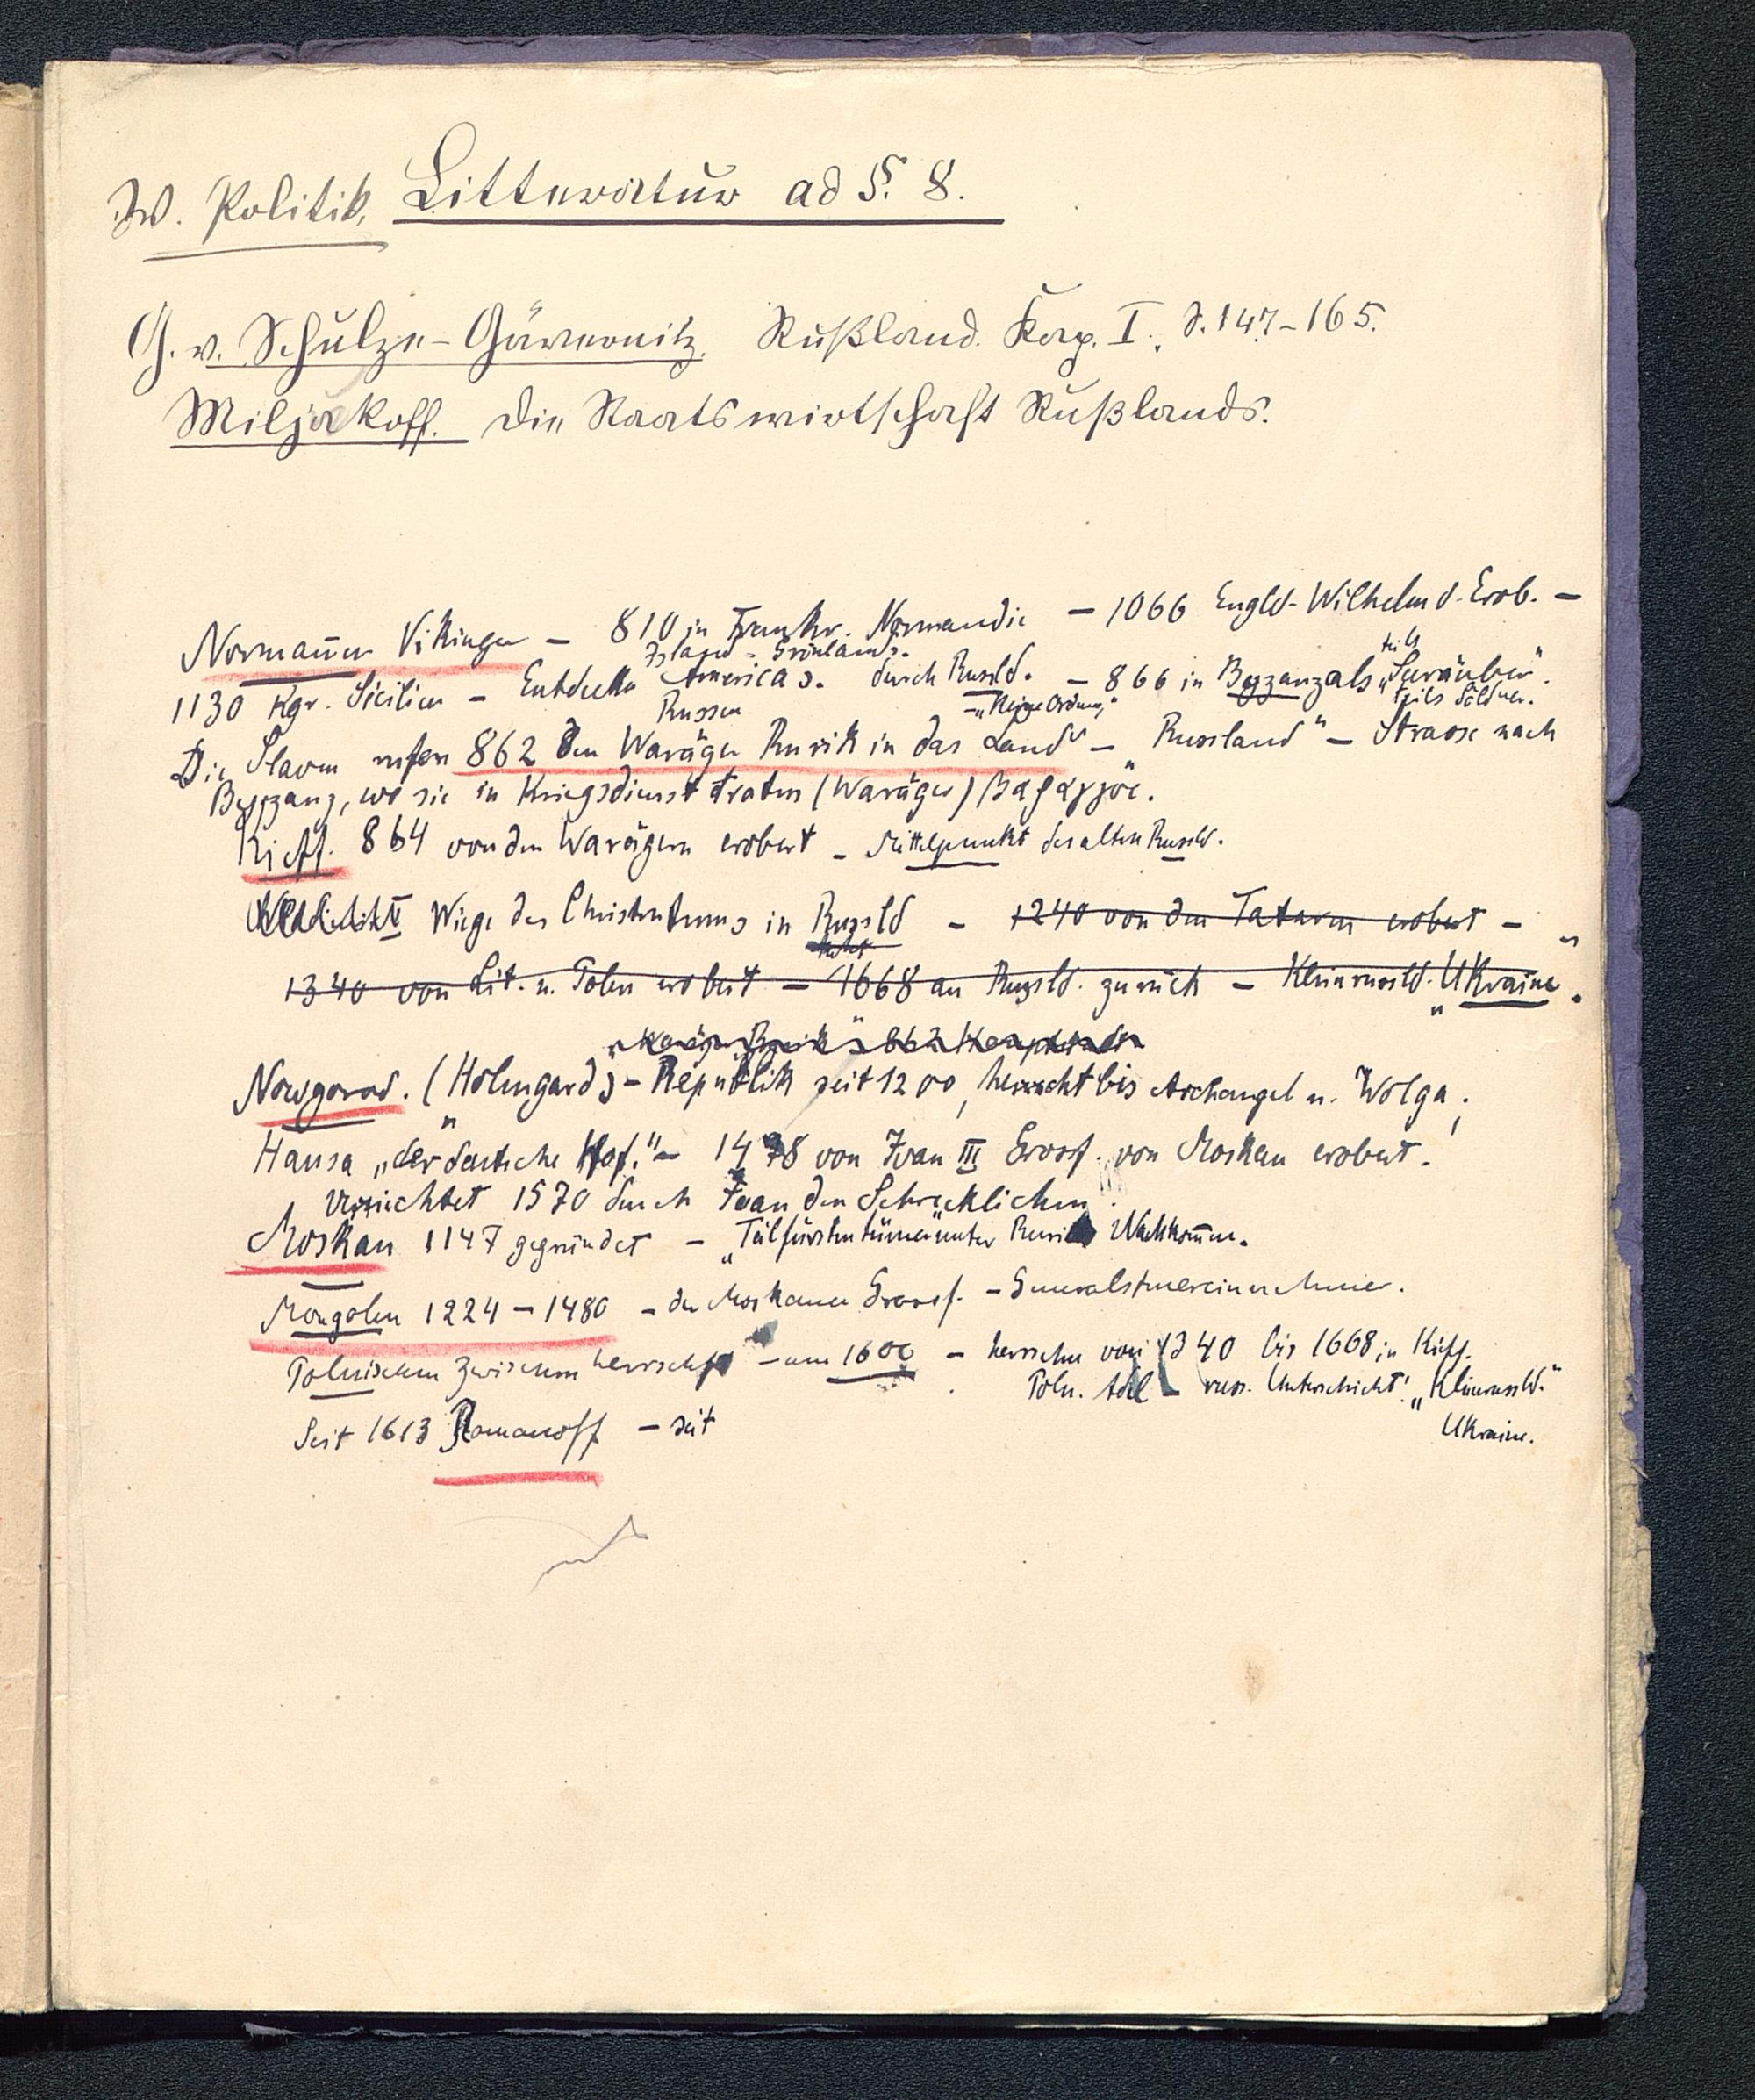 W. Politik. Litteratur ad §. 8.
G. v. Schulze-Gävernitz. Rußland. Kap. I. S. 147-165.
Miljukoff. Die Staatswirtschaft Rußlands.
Normannen Vikinger – 810 in Frankr. Normandie – 1066 Engld – Wilhelm d. Erob. –
Island – Grönlands. teils
1130 Kgr. Sicilien – Entdecker Americas. durch Russld. – 866 in Byzzanz als „Seeräuber".
Russen – „Keine Ordnung" teils Söldner.
Die Slaven rufen 862 den Waräger Rurik in das Land – „Russland" – Strasse nach
Byzzanz, wo sie in Kriegsdienst traten (Waräger)
Kieff. 864 von den Warägern erobert – Mittelpunkt des alten Russld.
Wiege des Christentums in Russld – 1240 von den Tataren erobert –
1340 von Lit. u. Polen erobert – 1668 an Russld. zurück – Kleinrussld. „Ukraine".
862
Nowgorod. (Holmgard) – Republik seit 1200, herrscht bis Archangel u. Wolga;
Hansa „der deutsche Hof." – 1478 von Ivan III Grossf. von Moskau erobert.
Vernichtet 1570 durch Ivan den Schrecklichen.
Moskau 1147 gegründet – „Teilfürstentümer" unter Ruriks Nachkommen.
Mongolen 1224 – 1480 – der Moskauer Grossf. – Generalsteuereinnehmer.
Polnischen Zwischenherrschaft – um 1600 – herrschen von 1340 bis 1668 in Kieff.
Poln. Adel – russ. Unterschicht! „Kleinrussld."
Seit 1613 Romanoff – seit
Ukraine.